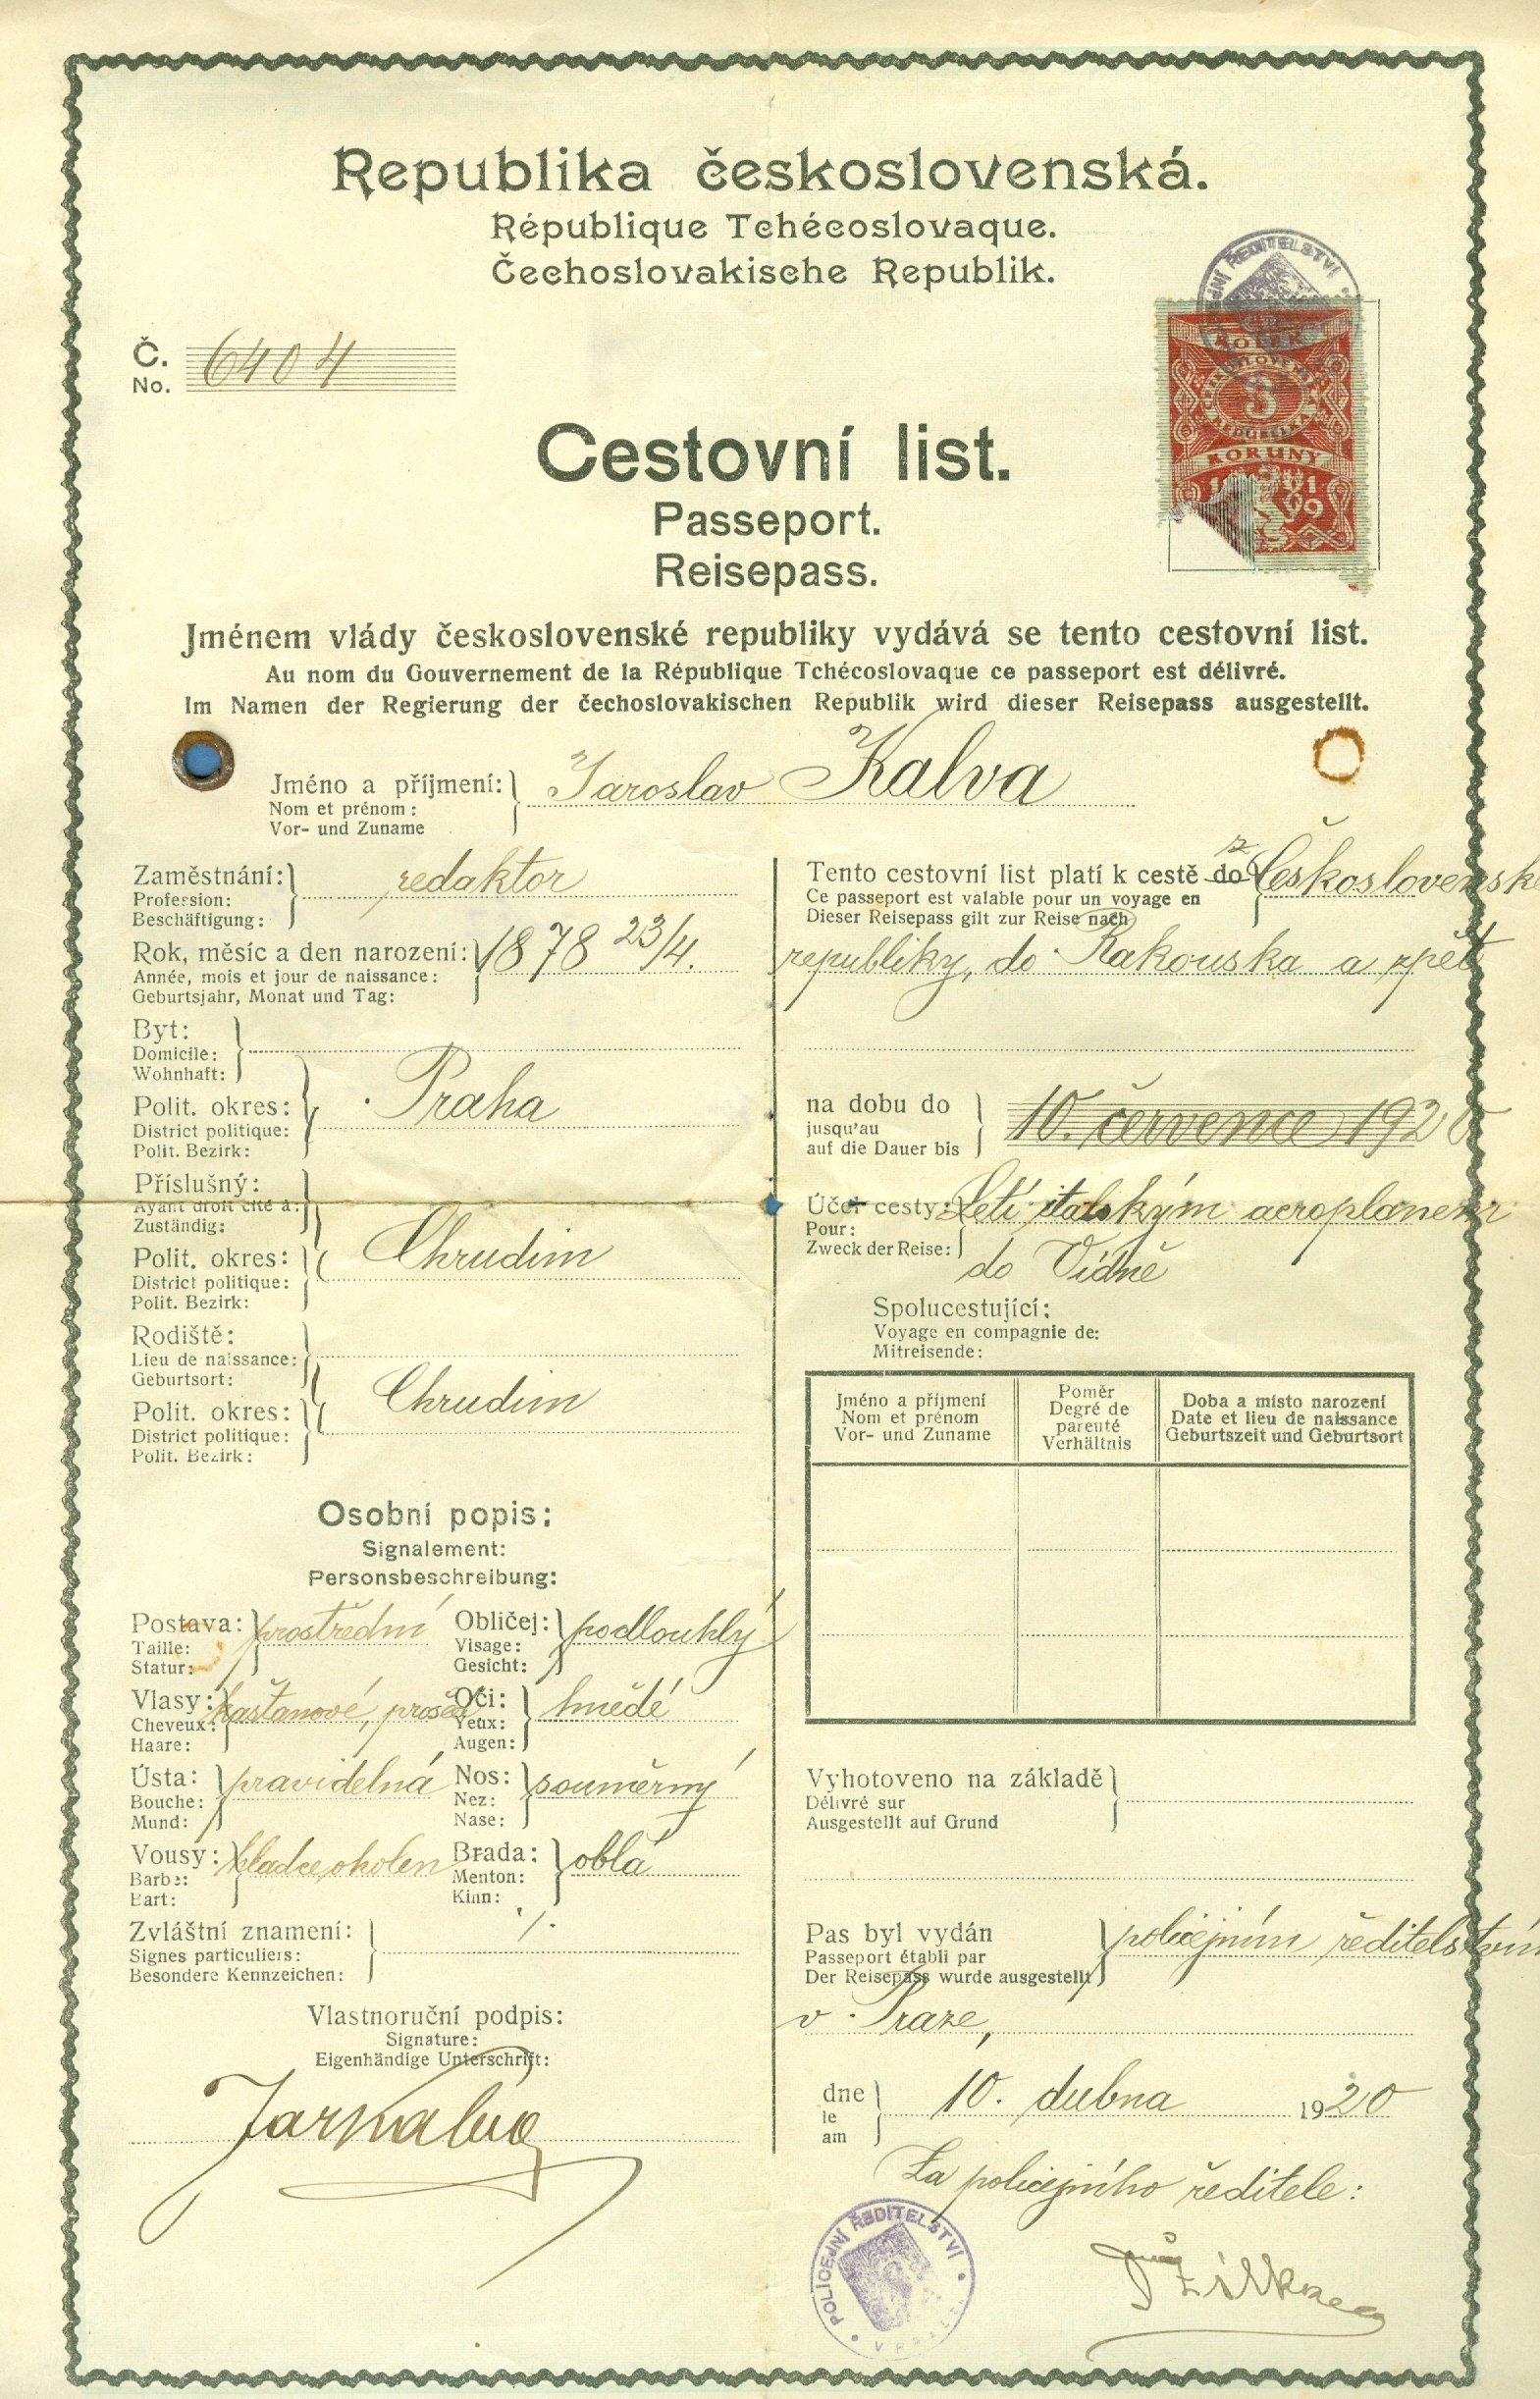 Republika československá.
République Tchécoslovaque.
Čechoslovakische Republik.
POLICEJNÍ ŘEDITELSTVÍ
Č. 6404
No.
KOLEK
3
KORUNY
1919
Cestovní list.
Passeport.
Reisepass.
Jménem vlády československé republiky vydává se tento cestovní list.
Au nom du Gouvernement de la République Tchécoslovaque ce passeport est délivré.
Im Namen der Regierung der čechoslovakischen Republik wird dieser Reisepass ausgestellt.
Jméno a příjmení: Jaroslav Kalva
Nom et prénom:
Vor- und Zuname
Zaměstnání: redaktor
Profession:
Beschäftigung:
Rok, měsíc a den narození: 1878 23/4.
Année, mois et jour de naissance:
Geburtsjahr, Monat und Tag:
Byt:
Domicile:
Wohnhaft:
Polit. okres: Praha
District politique:
Polit. Bezirk:
Příslušný:
Ayant droit cité à:
Zuständig:
Polit. okres: Chrudim
District politique:
Polit. Bezirk:
Rodiště:
Lieu de naissance:
Geburtsort:
Polit. okres: Chrudim
District politique:
Polit. Bezirk:
Osobní popis:
Signalement:
Personsbeschreibung:
Postava: prostřední Obličej: podlouhlý
Taille: Visage:
Statur: Gesicht:
Vlasy: kaštanové, Oči: hnědé
Cheveux: Yeux:
Haare: Augen:
Ústa: pravidelná Nos: souměrný
Bouche: Nez:
Mund: Nase:
Vousy: hladce oholen Brada: oblá
Barbe: Menton:
Bart: Kinn:
Zvláštní znamení: ·/.
Signes particuliers:
Besondere Kennzeichen:
Vlastnoruční podpis:
Signature:
Eigenhändige Unterschrift:
JarKalva
Tento cestovní list platí k cestě do z Československé
Ce passeport est valable pour un voyage en
Dieser Reisepass gilt zur Reise nach
republiky, do Rakouska a zpět
na dobu do 10. července 1920
jusqu'au
auf die Dauer bis
Účel cesty: Letí italským aeroplanem
Pour:
Zweck der Reise: do Vídně
Spolucestující:
Voyage en compagnie de:
Mitreisende:
Jméno a příjmení Poměr Doba a místo narození
Nom et prénom Degré de parenté Date et lieu de naissance
Vor- und Zuname Verhältnis Geburtszeit und Geburtsort
Vyhotoveno na základě
Délivré sur
Ausgestellt auf Grund
Pas byl vydán policejním ředitelstvím
Passeport établi par
Der Reisepass wurde ausgestellt
v Praze,
dne 10. dubna 1920
le
am
Za policejního ředitele:
POLICEJNÍ ŘEDITELSTVÍ